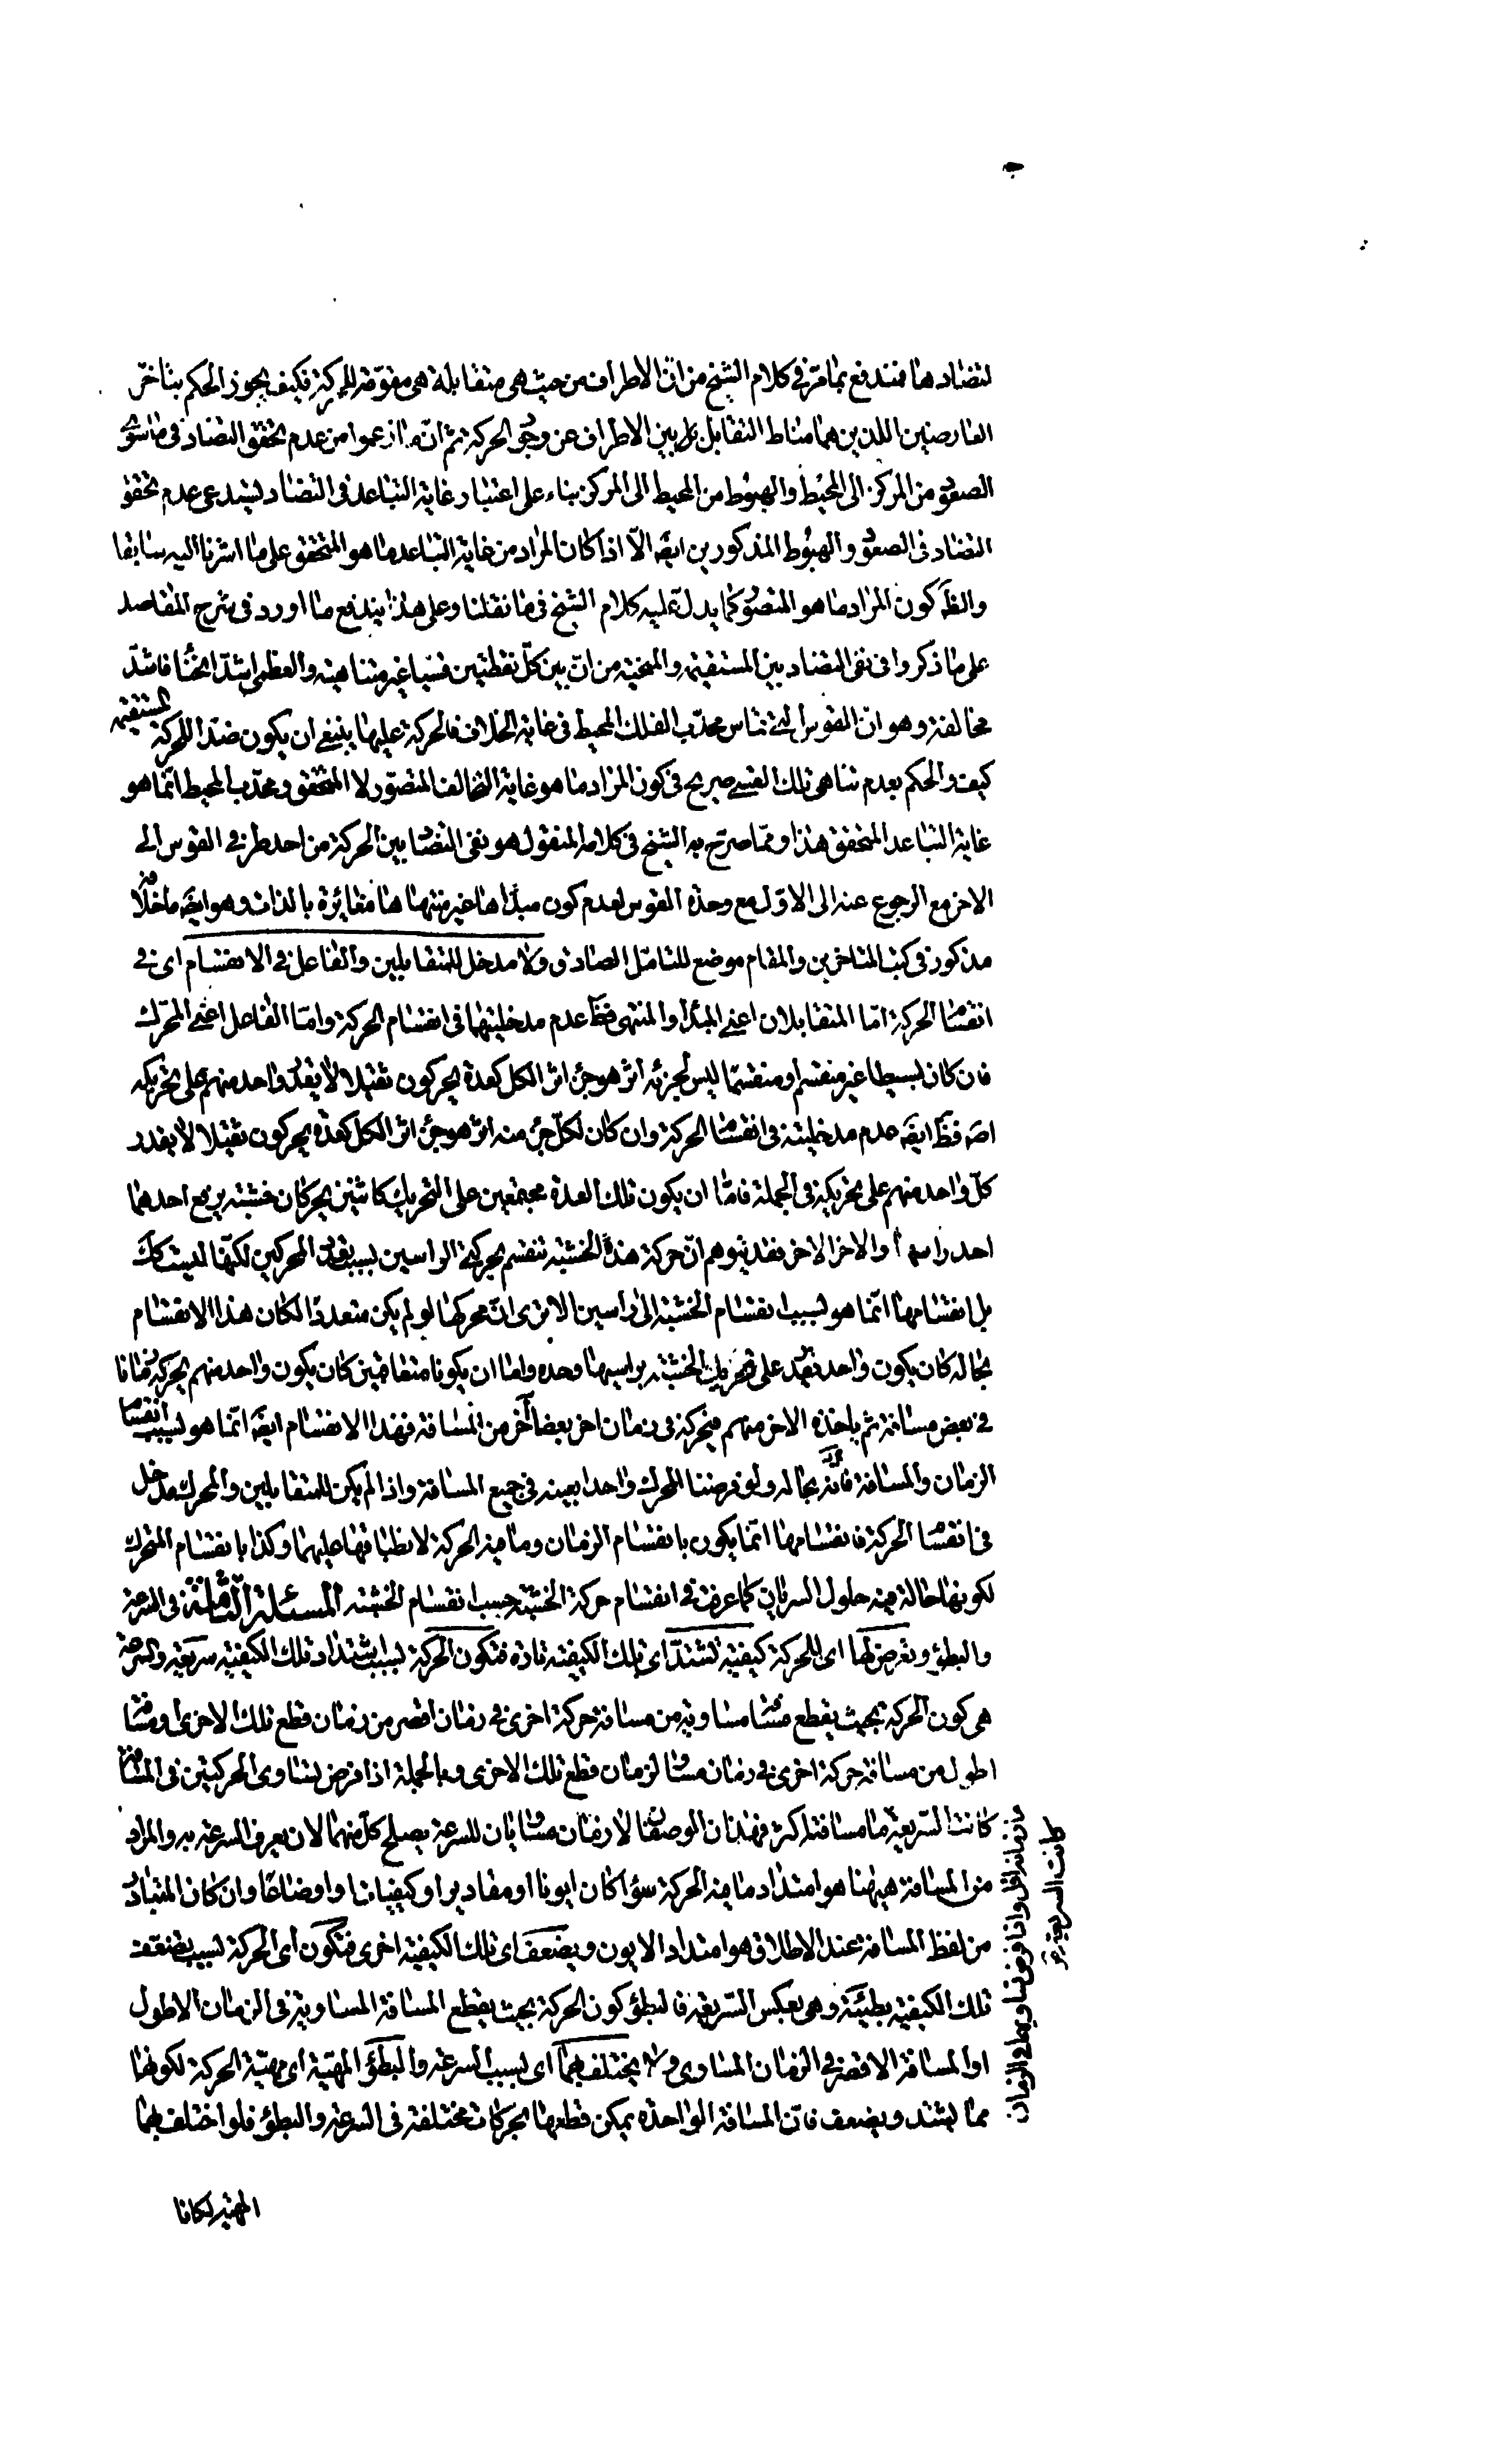 لتضادها فمندفع بما مرّ فى كلام الشيخ من انّ الاطراف من حيث هى متقابلة هى مقوّمة للحركة فكيف يجوز الحكم بتاخّر
العارضين اللذين هما مناط التقابل بين الاطراف عن وجود الحركة ثمّ انّ ما زعموا من عدم تحقق التضاد فى ما سوى
الصعود من المركز الى المحيط والهبوط من المحيط الى المركز بناء على اعتبار غاية التباعد فى التضاد يستدعى عدم تحقق
التضاد فى الصعود والهبوط المذكورين ايضَ الّا اذا كان المراد من غاية التباعد ما هو المتحقق على ما اشرنا اليه سابقا
والظَ كون المراد ما هو المتصوّر كما يدلّ عليه كلام الشيخ فى ما نقلنا وعلى هذا يندفع ما اورد فى شرح المقاصد
على ما ذكروا فى نفى التضاد بين المستقيمة والمنحنية من انّ بين كلّ نقطتين قسيّا غير متناهية والعظمى اشدّ انحناء فاشدّ
مخالفة وهو انّ القوس التى تماس محدّب الفلك المحيط فى غاية الخلاف فالحركة عليها ينبغى ان يكون ضدّا للحركة المستقيمة
كيف والحكم بعدم تناهى تلك القسى صريح فى كون المراد ما هو غاية التخالف المتصوّر لا المتحقق ومحدّب المحيط انّما هو
غاية التباعد المتحقق هذا وممّا صرّح به الشيخ فى كلامه المنقول هو نفى التضاد بين الحركة من احد طرفى القوس الى
الاخر مع الرجوع عنه الى الاوّل مع وحدة القوس لعدم كون مبدأها غير منتهاها مغايرة بالذات وهو ايضَ ما خلا منه
مذكور فى كتب المتاخرين والمقام موضع للتامّل الصادق ولا مدخل للمتقابلين والفاعل فى الانقسام اى فى
انقسام الحركة امّا المتقابلان اعنى المبدأ والمنتهى فظَ عدم مدخليتهما فى انقسام الحركة وامّا الفاعل اعنى المحرّك
فان كان بسيطا غير منقسم او منقسما ليس لجزئه اثر هو جزء اثر الكل كعدة يحركون ثقيلا لا يقدر واحد منهم على تحريكه
اصَ فظَ ايضَ عدم مدخليته فى انقسام الحركة وان كان لكلّ جزء منه اثر هو جزء اثر الكل كعدة يحركون ثقيلا لا يقدر
كلّ واحد منهم على تحريكه فى الجملة فامّا ان يكون تلك العدة مجتمعين على التحريك كاثنين يحركان خشبة يرفع احدهما
احد راسيها والاخر الاخر فقد يتوهم انّ حركة هذه الخشبة تنقسم بحركتى الراسين بسبب المحركين لكنّها ليست كك
بل انقسامها انّما هو بسبب انقسام الخشبة الى راسين الا ترى انّ محركها لو لم يكن متعددا لكان هذا الانقسام
بحاله كان يكون واحد يقدر على تحريك الخشبة براسيها وحده وامّا ان يكونا متعاقبين كان يكون واحد منهم يحركه زمانا
فى بعض مسافته ثم ياخذه الاخر منهم فيحركه فى زمان اخر بعضا آخر من المسافة فهذا الانقسام ايضَ انّما هو بسبب انقسام
الزمان والمسافة فانّه بحاله ولو فرضنا المحرك واحدا بعينه فى جميع المسافة واذا لم يكن للمتقابلين والمحرك مدخل
فى انقسام الحركة فانقسامها انّما يكون بانقسام الزمان وما فيه الحركة لانطباقها عليهما وكذا بانقسام المتحرك
لكونها حالة فيه حلول السريان كما عرفت فى انقسام حركة الخشبة حسب انقسام الخشبة المسئلة الثامنة فى السرعة
والبطؤ ويعرض لها اى للحركة كيفية تشتدّ اى تلك الكيفية تارة فتكون الحركة بسبب اشتداد تلك الكيفية سريعة والسرعة
هى كون الحركة بحيث يقطع مسافة مساوية من مسافة حركة اخرى فى زمان اقصر من زمان قطع تلك الاخرى او مسافة
اطول من مسافة حركة اخرى فى زمان مساو لزمان قطع تلك الاخرى وبالجملة اذا فرض تساوى الحركتين فى المسافة
كانت السريعة ما مسافته اكثر فهذان الوصفان لازمان مساويان للسرعة يصلح كلّ منهما لان يعرف السرعة به والمراد
من المسافة هيهنا هو امتداد ما فيه الحركة سواء كان ايونا او مقادير او كيفيات او اوضاعا وان كان المتبادر
من لفظ المسافة عند الاطلاق هو امتداد الايون ويضعف اى تلك الكيفية اخرى فتكون اى الحركة بسبب ضعف
تلك الكيفية بطيئة وهى بعكس السّريعة فالبطؤ كون الحركة بحيث يقطع المسافة المساوية فى الزمان الاطول
او المسافة الاقصر فى الزمان المساوى ولا يختلف بهما اى بسبب السرعة والبطؤ المهيّة اى مهيّة الحركة لكونهما
ممّا يشتد ويضعف فانّ المسافة الواحدة يمكن قطعها بحركات مختلفة فى السرعة والبطؤ فلو اختلف بهما
ما زمانه اقل واذا فرض تساويهما فى الزمان
كانت السريعة
المهيّة لكانا